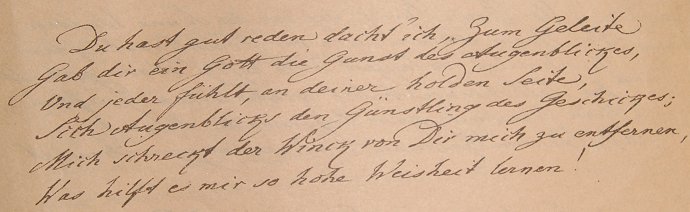 Du hast gut reden dacht' ich, Zum Geleite
Gab dir ein Gott die Gunst des Augenblickes,
Und jeder fühlt, an deiner holden Seite,
Sich Augenblicks den Günstling des Geschickes;
Mich schreckt der Winck von Dir mich zu entfernen,
Was hilft es mir so hohe Weisheit lernen!